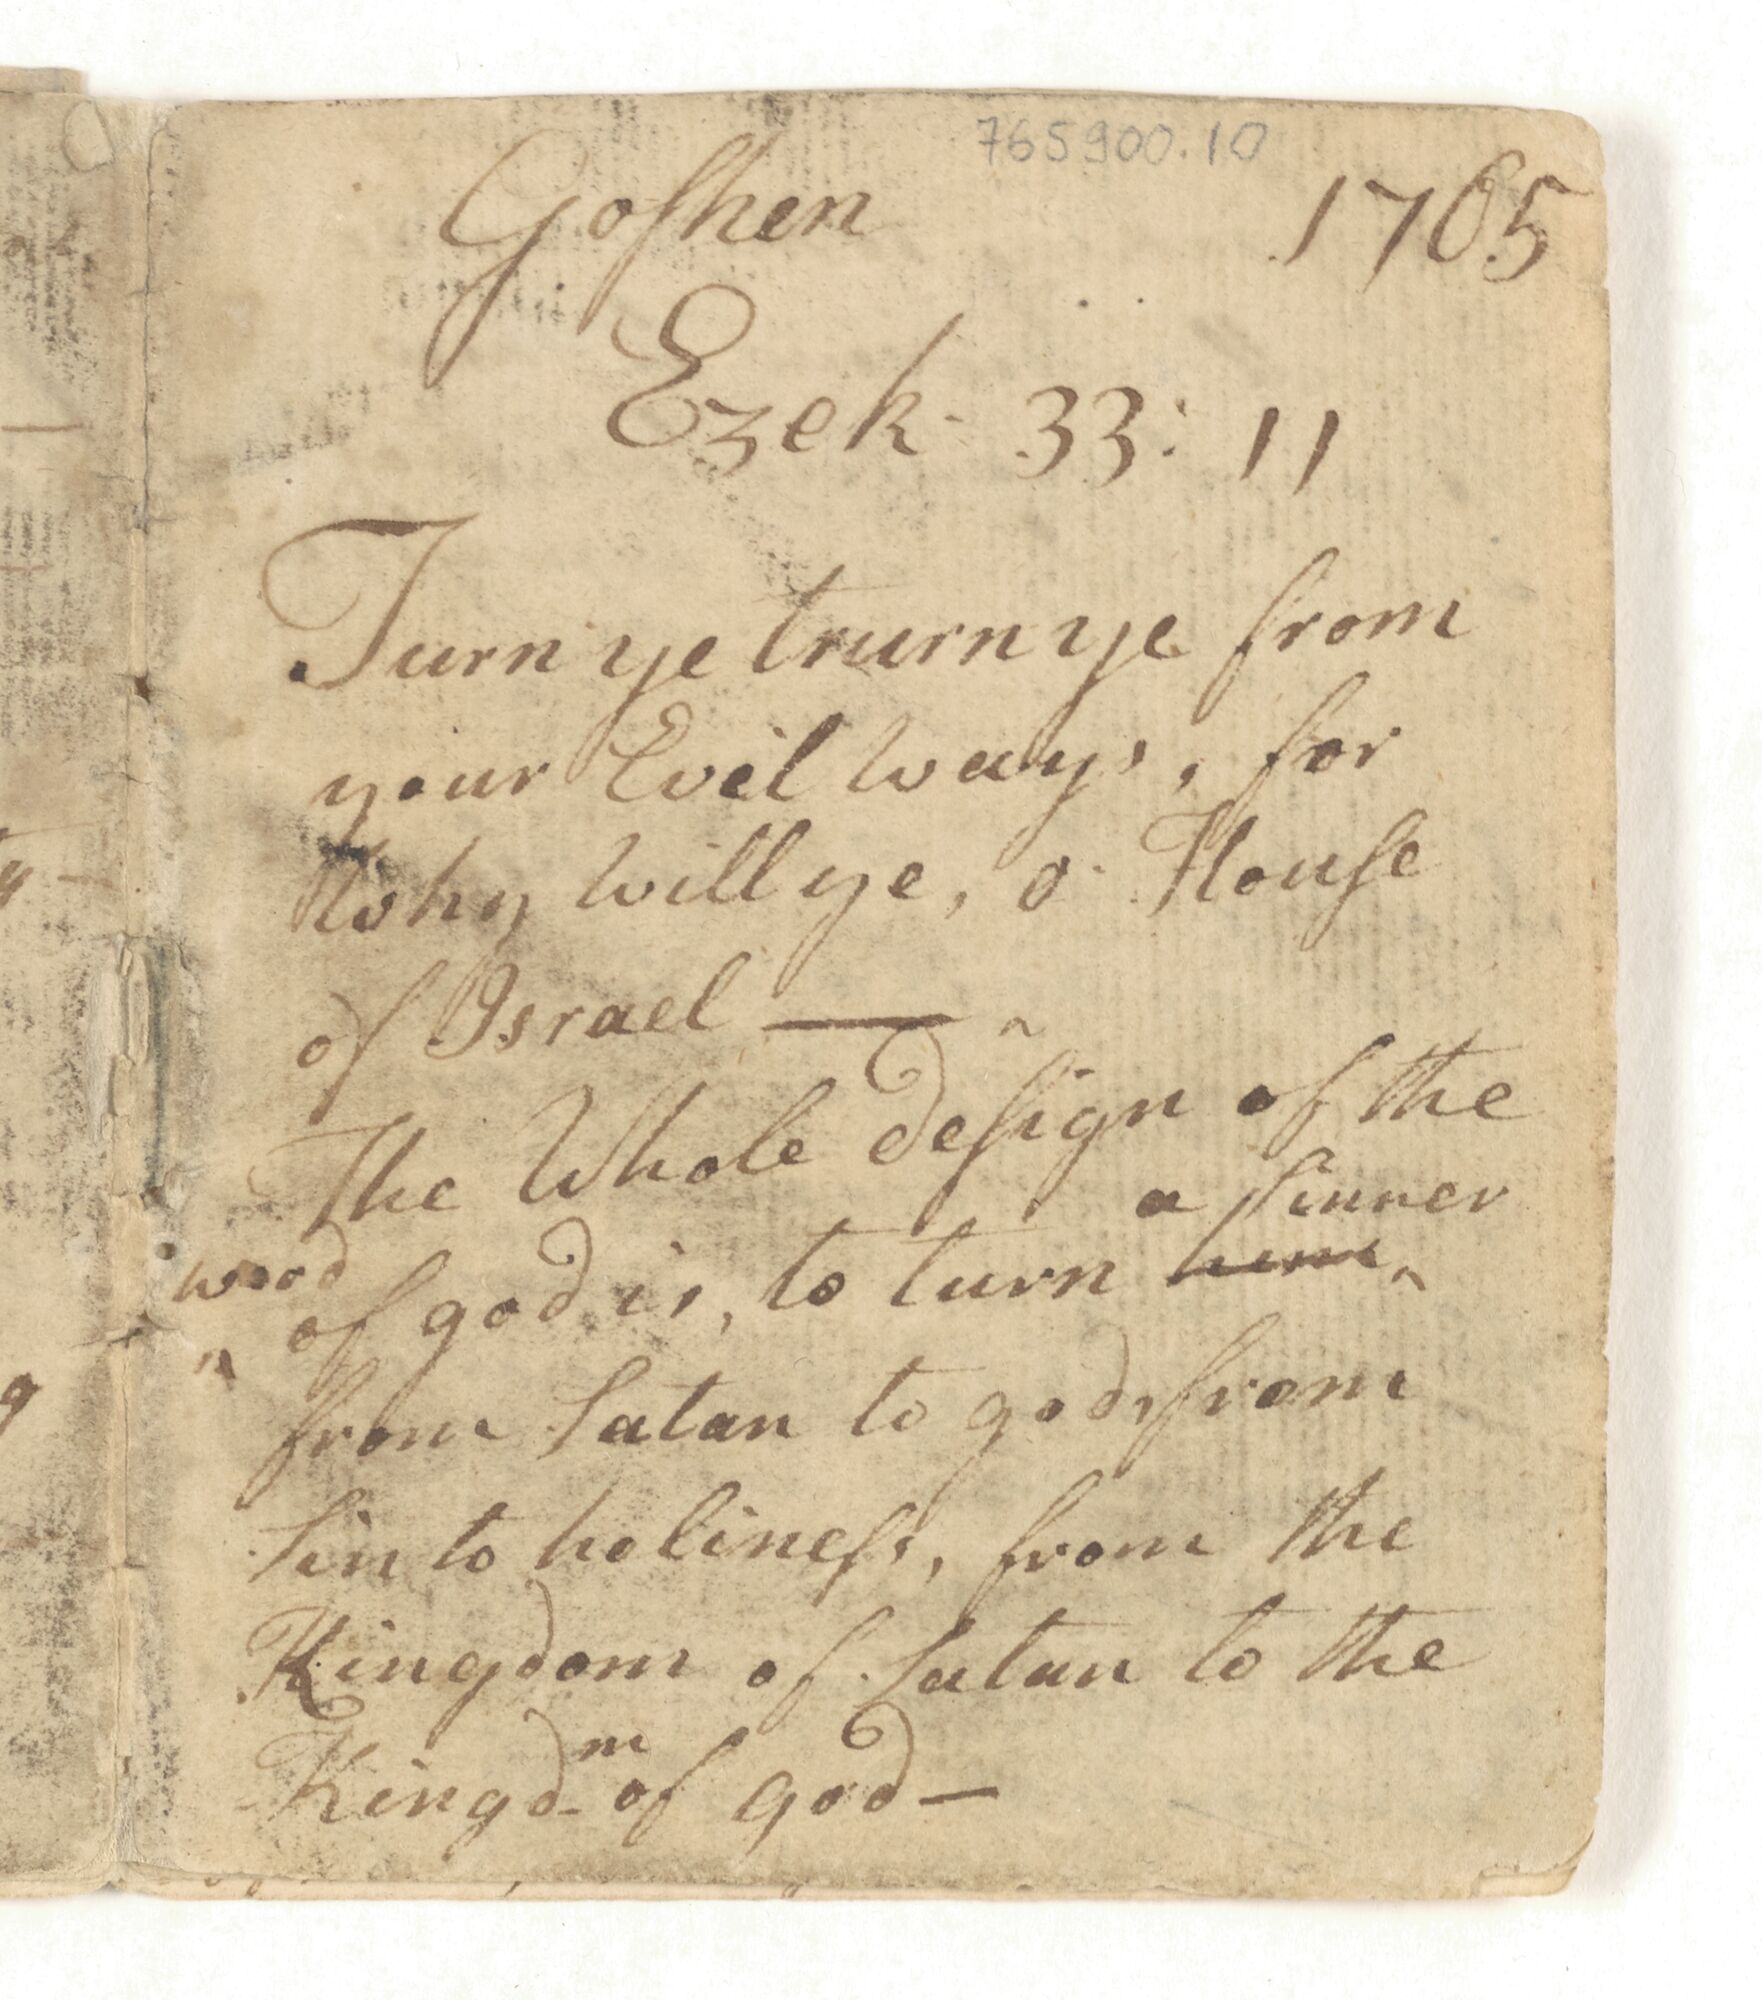 765900.10
Goshen 1765
Ezek. 33: 11
Turn ye trurn ye from
your Evel ways, for
Why will ye, o House
of Israel —
The Whole design of the
wood of god is, to turn a Sinner
from Satan to god, from
Sin to holiness, from the
Kingdom of Satan to the
Kingdm of god —